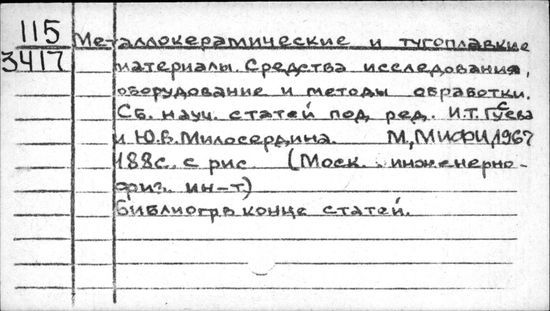 115
3417
Металлокерамические и тугоплавкие
материалы. Средства исследования,
оборудование и методы обработки.
Сб. науч. статей под ред. И.Т. Гусева
и Ю.В. Милосердина. М, МИФИ, 1967
188с. с рис (Моск. инженерно-
физ. ин-т)
Библиогр. в конце статей.